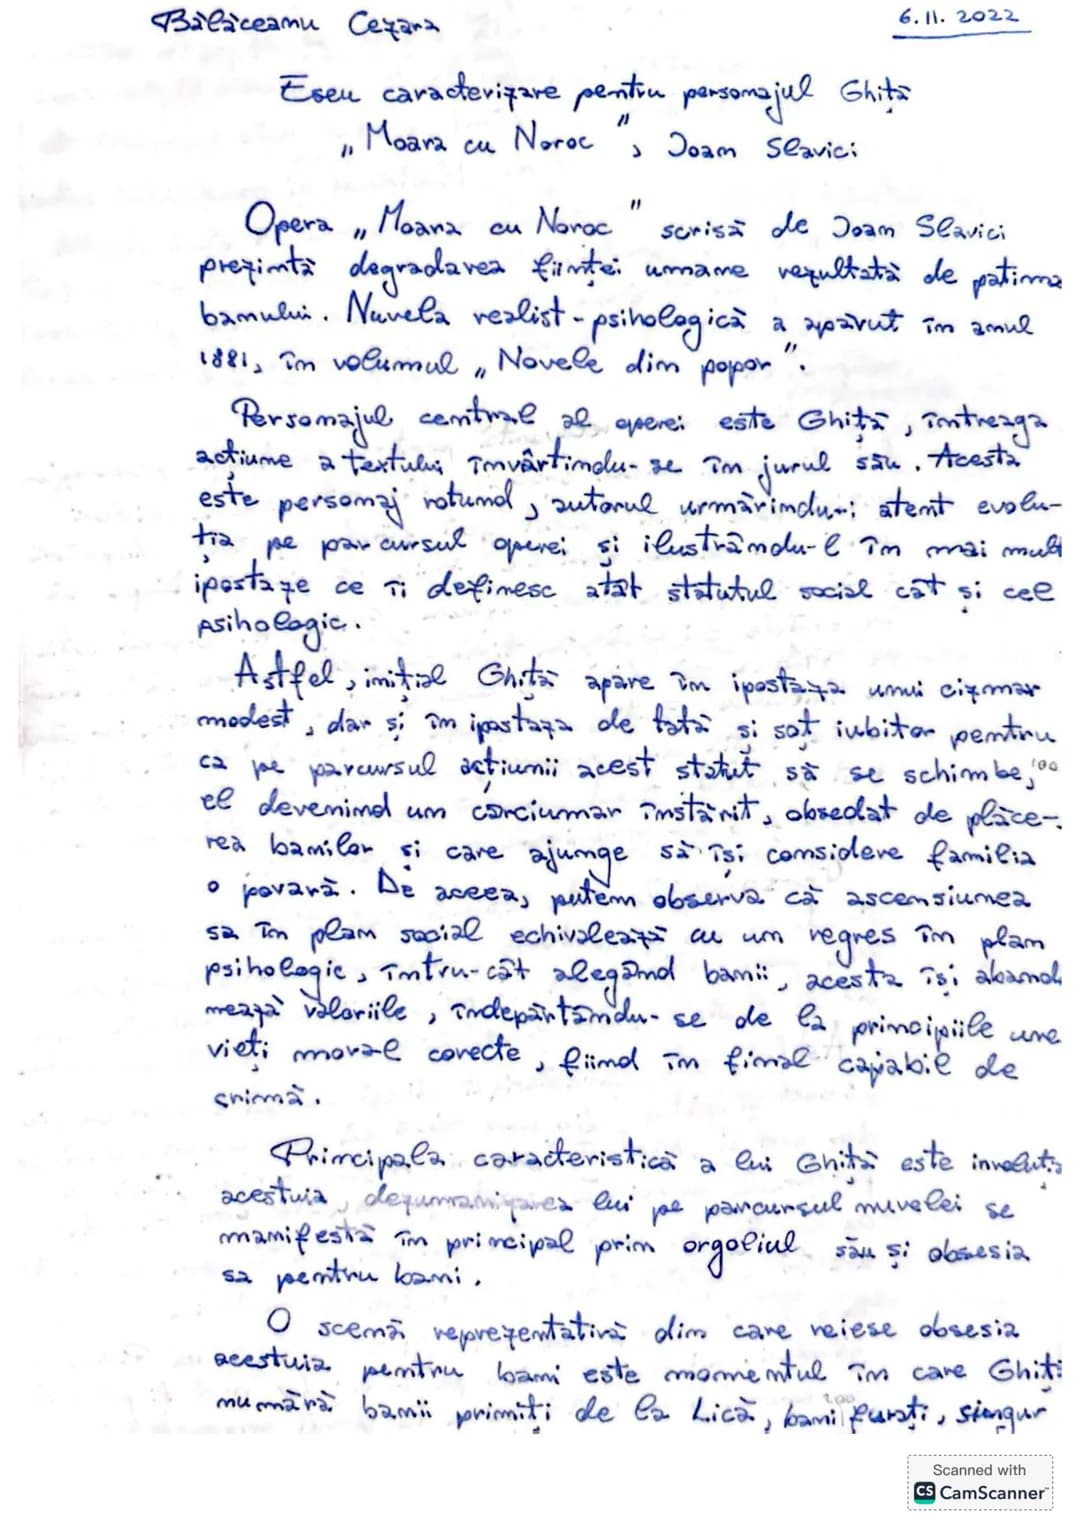 Bălăceanu Cezara
6.11.2022
Eseu caracterizare pentru personajul Ghiță
„Moara cu Noroc", Ioan Slavici
Opera „Moara cu Noroc" scrisă de Ioan Slavici
prezintă degradarea ființei umane rezultată de patima
banului. Nuvela realist-psihologică a apărut în anul
1881, în volumul „Novele din popor".
Personajul central al operei este Ghiță, întreaga
acțiune a textului învârtindu-se în jurul său. Acesta
este personaj rotund, autorul urmărindu-i atent evolu-
ția pe parcursul operei și ilustrându-l în mai mult
ipostaze ce îi definesc atât statutul social cât și cel
psihologic.
Astfel, inițial Ghiță apare în ipostaza unui cizmar
modest, dar și în ipostaza de tată și soț iubitor pentru
ca pe parcursul acțiunii acest statut să se schimbe, 100
el devenind un cârciumar înstărit, obsedat de plăce-
rea banilor și care ajunge să își considere familia
o povară. De aceea, putem observa că ascensiunea
sa în plan social echivalează cu un regres în plan
psihologic, întru-cât alegând banii, acesta își aband
nează valoriile, îndepărtându-se de la principiile une
vieți moral corecte, fiind în final capabil de
crimă.
Principala caracteristică a lui Ghiță este involuți
acestuia, dezumanizarea lui pe parcursul nuvelei se
manifestă în principal prin orgoliul său și obsesia
sa pentru bani.
O scenă reprezentativă din care reiese obsesia
acestuia pentru bani este momentul în care Ghiț
numără banii primiți de la Lică, bani furați, singur
200
Scanned with
CS CamScanner